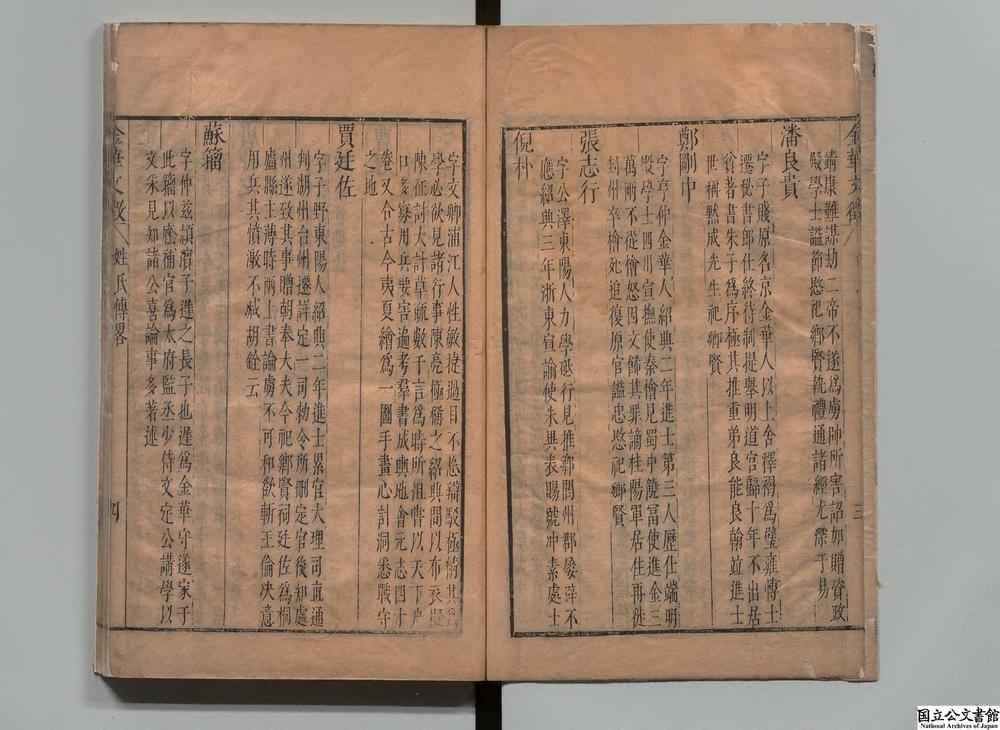 金華文徵
靖康難謀劫二帝不遂為虜帥所害詔加贈資政
殿學士謚節愍祀鄉賢執禮通諸經尤深于易
潘良貴
字子賤原名京金華人以上舍釋褐為璧雍博士
遷秘書郎仕終待制提舉明道宮歸十年不出居
貧著書朱子為序極其推重弟良能良翰竝進士
世稱默成先生祀鄉賢
鄭剛中
字亨仲金華人紹興二年進士第三人歷仕端明
殿學士四川宣撫使秦檜見蜀中饒富使進金三
萬兩不從檜怒因文飾其罪謫桂陽軍居住再徙
封州卒檜死追復原官謚忠愍祀鄉賢
張志行
字公澤東陽人力學砥行見推鄉閭州郡屡辟不
應紹興三年浙東宣諭使朱異表賜號冲素處士
倪朴
三
字文卿浦江人性敏捷過目不忘辯駁極情其為
學必欲見諸行事陳亮極稱之紹興間以布衣擬
陳征討大計草疏數千言為時所沮嘗以天下户
口多寡用兵要害遍考羣書成輿地會元志四十
卷又合古今夷夏繪為一圖手畫心計洞悉戰守
之地
賈廷佐
字子野東陽人紹興二年進士累官大理司直通
判湖州台州遷詳定一司勑令所刪定官後知處
州遂致其事贈朝奉大夫今祀鄉賢祠廷佐為桐
廬縣主薄時兩上書論虜不可和欲斬王倫决意
用兵其憤激不減胡銓云
蘇籀
字仲兹潁濱子遲之長子也遲為金華守遂家于
此籀以廕補官為太府監丞少侍文定公講學以
文采見知諸公喜論事多著述
金華文徵
姓氏傳畧
四
国立公文書館
National Archives of Japan